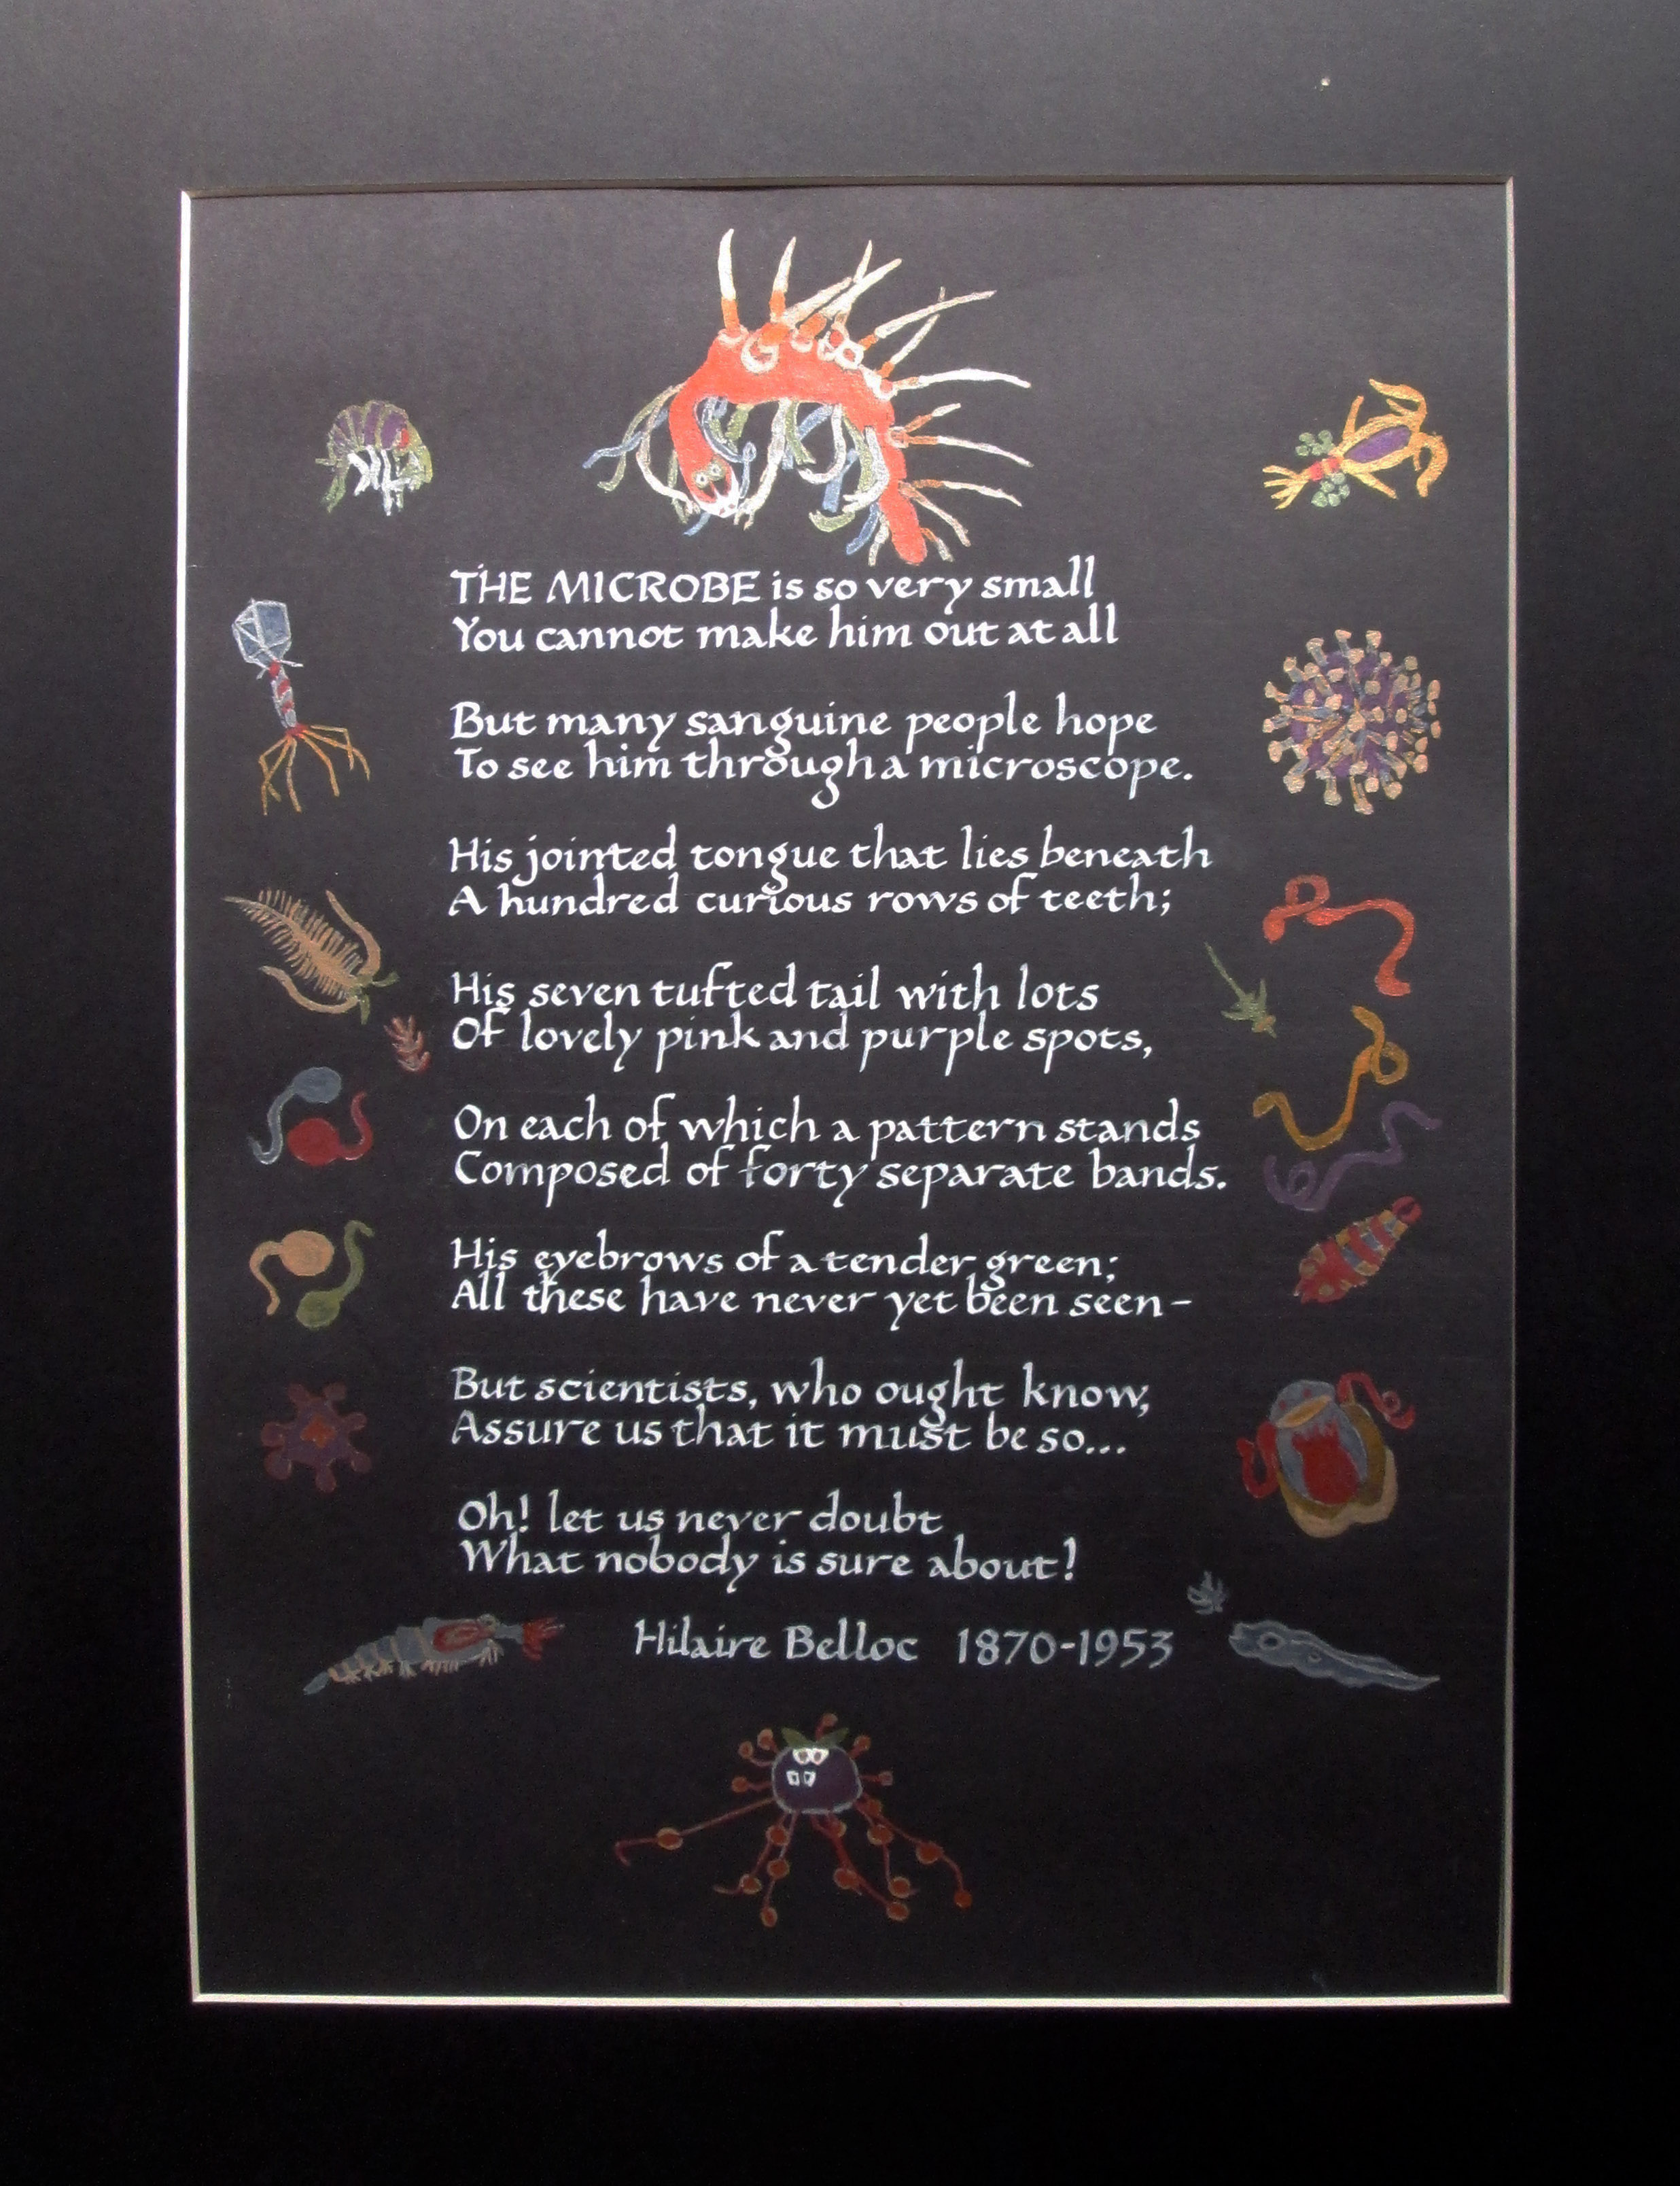 THE MICROBE is so very small
You cannot make him out at all
But many sanguine people hope
To see him through a microscope.
His jointed tongue that lies beneath
A hundred curious rows of teeth;
His seven tufted tail with lots
Of lovely pink and purple spots,
On each of which a pattern stands
Composed of forty separate bands.
His eyebrows of a tender green;
All these have never yet been seen-
But scientists, who ought know,
Assure us that it must be so...
Oh! let us never doubt
What nobody is sure about!
Hilaire Belloc 1870-1953